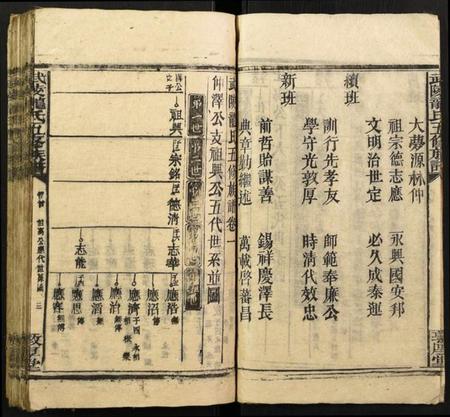 大夢源林仲
祖宗德志應　永興國安邦
文明治世定　必久成泰運
續班
訓行先孝友　師範奉廉公
學守光敦厚　時清代效忠
新班
前哲貽謀善　錫祥慶澤長
典章勤繼述　萬載啓蕃昌
武陵龍氏五修族譜
武陵龍氏五修族譜卷一
仲澤公支祖興公五代世系並圖
第一世
第二世
第三世
祖興
宗銘
德清
志華
志能
應浩
應沼
應濟
應治
應滔
應思
應容
武陵龍氏五修族譜
敦厚堂